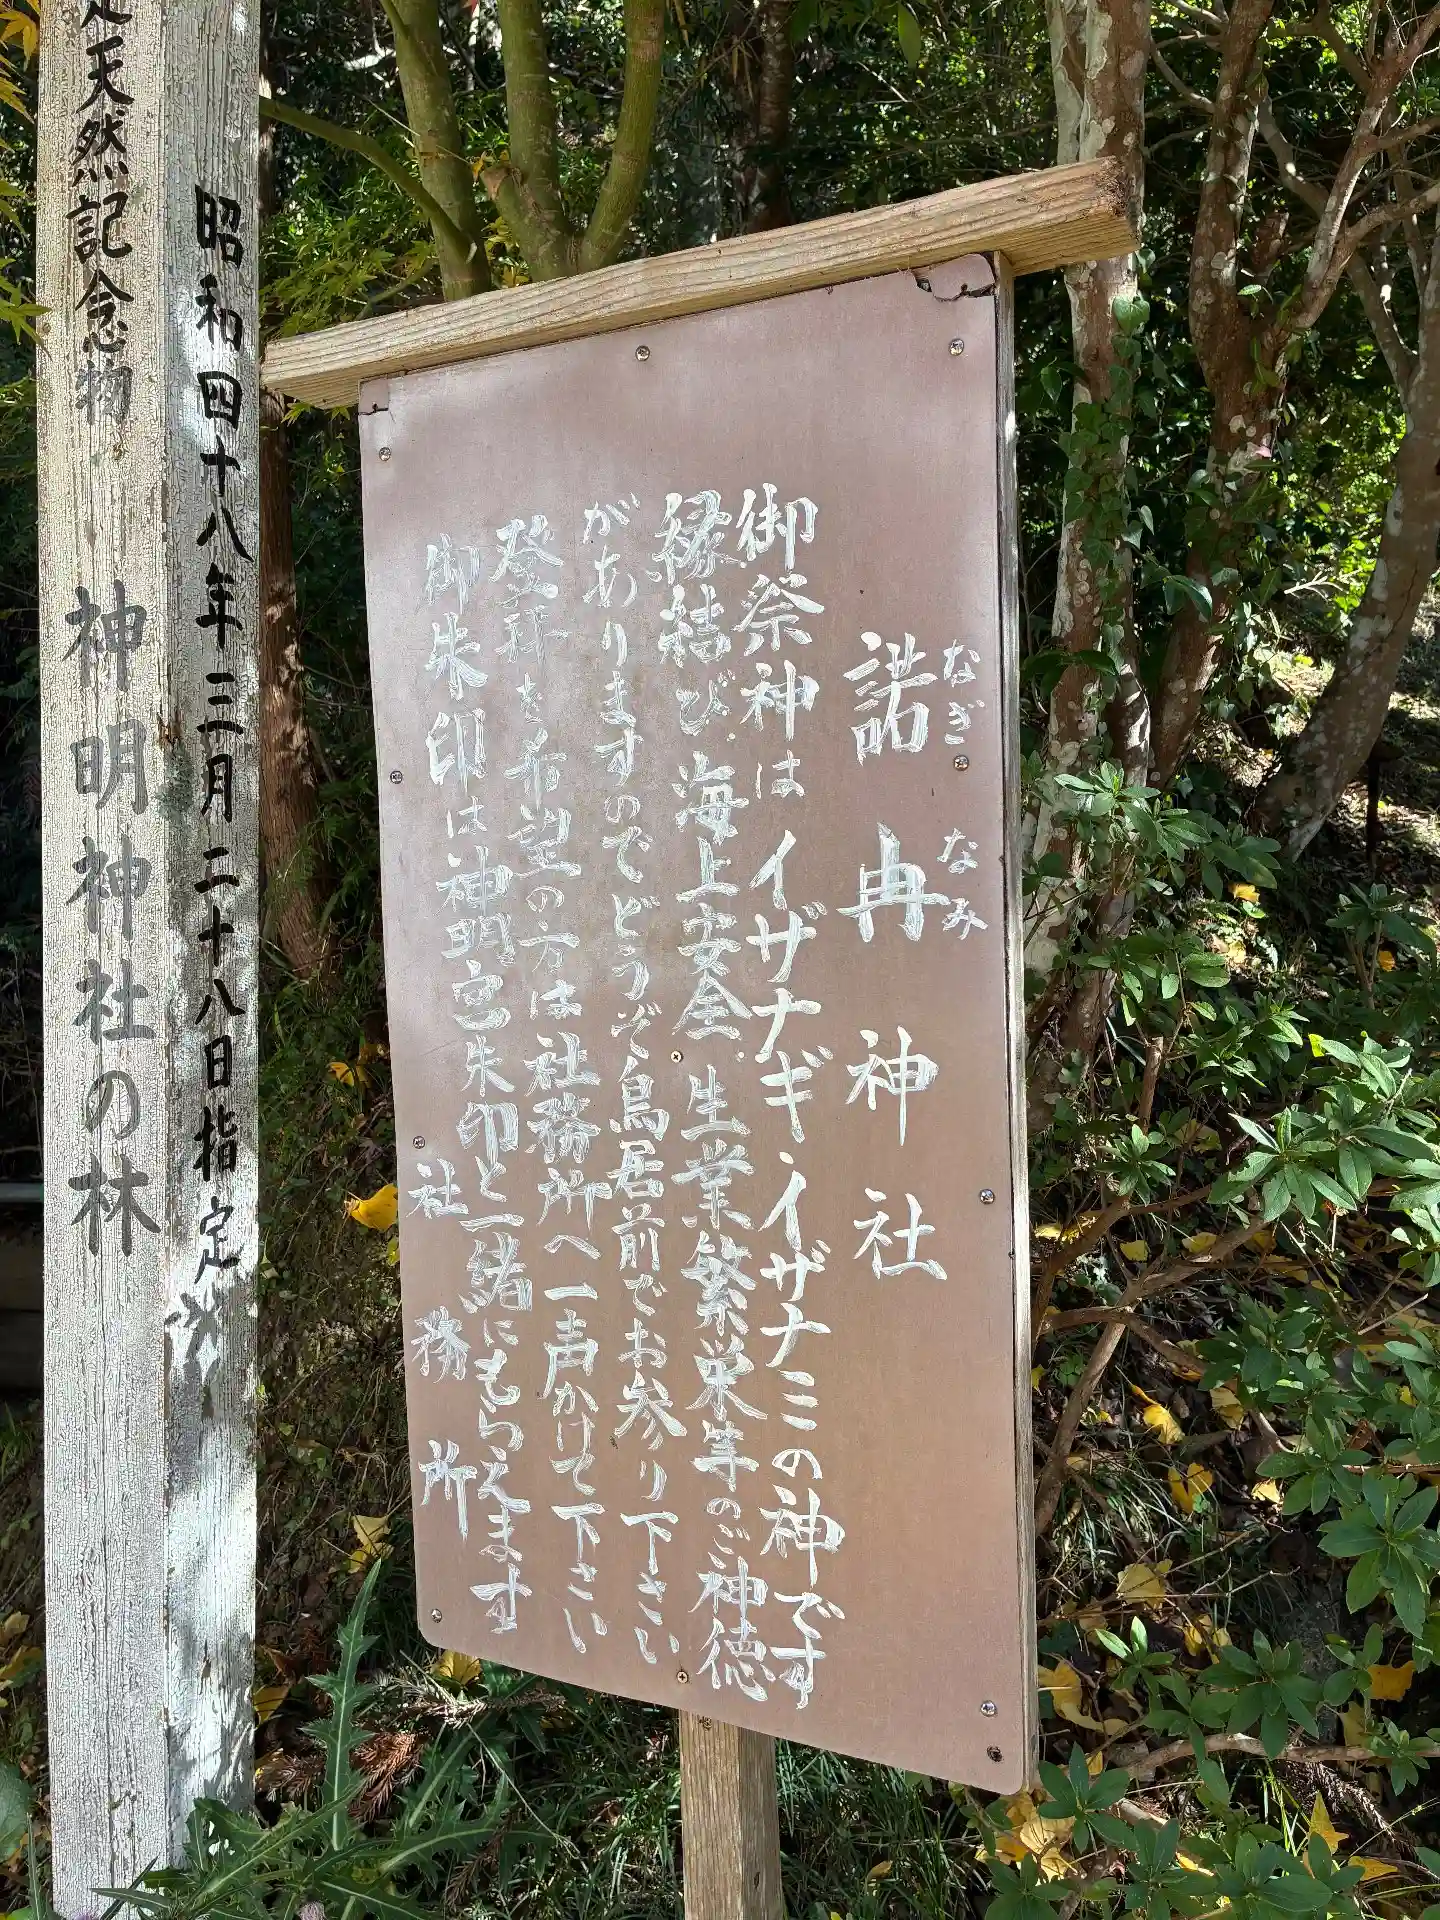 諾冉神社
なぎなみ
御祭神はイザナギ・イザナミの神です
縁結び、海上安全、生業繁栄等のご神徳
がありますのでどうぞ鳥居前でお参り下さい
登拝を希望の方は社務所へ一声かけて下さい
御朱印は神明宮朱印と一緒にもらえます
社務所
昭和四十八年三月二十八日指定
定天然記念物
神明神社の林